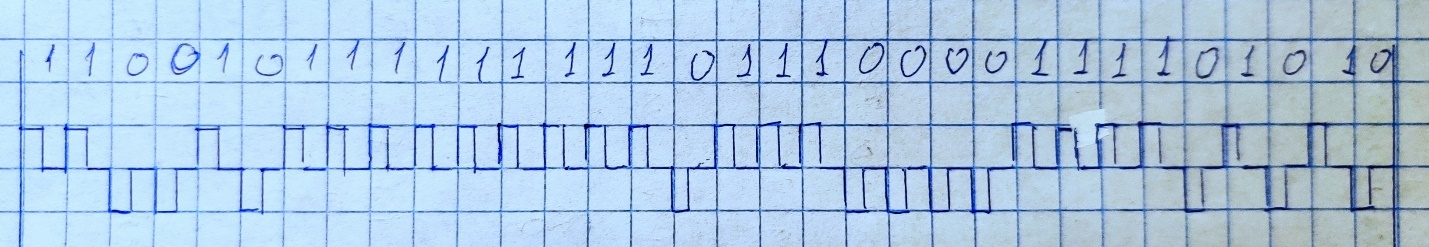 1 1 0 0 1 0 1 1 1 1 1 1 1 1 1 0 1 1 1 0 0 0 0 1 1 1 1 0 1 0 1 0